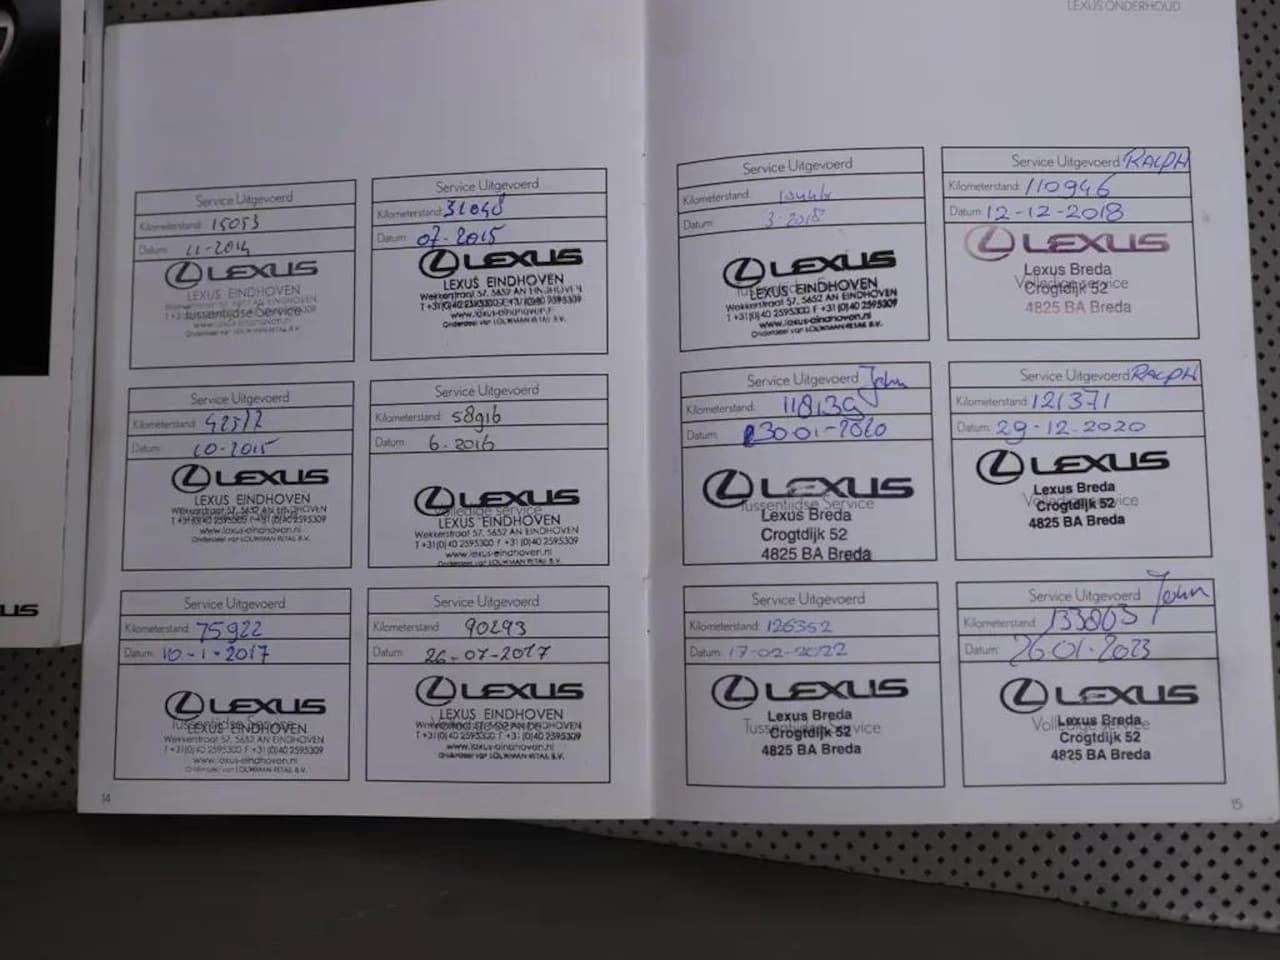 LEXUS ONDERHOUD
Service Uitgevoerd
Kilometerstand: 15053
Datum: 11-2014
LEXUS
LEXUS EINDHOVEN
Tussentijdse Service
Onderdeel van LOUWMAN RETAIL B.V.
Service Uitgevoerd
Kilometerstand: 31048
Datum: 07-2015
LEXUS
LEXUS EINDHOVEN
Wekkerstraat 57, 5652 AN EINDHOVEN
T +31(0)40 2595300 F +31(0)40 2595309
www.lexus-eindhoven.nl
Onderdeel van LOUWMAN RETAIL B.V.
Service Uitgevoerd
Kilometerstand:
Datum: 10-2015
LEXUS
LEXUS EINDHOVEN
Wekkerstraat 57, 5652 AN EINDHOVEN
T +31(0)40 2595300 F +31(0)40 2595309
www.lexus-eindhoven.nl
Onderdeel van LOUWMAN RETAIL B.V.
Service Uitgevoerd
Kilometerstand: 58916
Datum: 6-2016
LEXUS
Volledige service
LEXUS EINDHOVEN
Wekkerstraat 57, 5652 AN EINDHOVEN
T +31(0)40 2595300 F +31(0)40 2595309
www.lexus-eindhoven.nl
Onderdeel van LOUWMAN RETAIL B.V.
Service Uitgevoerd
Kilometerstand: 75922
Datum: 10-1-2017
LEXUS
Tussentijdse Service
LEXUS EINDHOVEN
Wekkerstraat 57, 5652 AN EINDHOVEN
T +31(0)40 2595300 F +31(0)40 2595309
www.lexus-eindhoven.nl
Onderdeel van LOUWMAN RETAIL B.V.
Service Uitgevoerd
Kilometerstand: 90293
Datum: 26-07-2017
LEXUS
LEXUS EINDHOVEN
Wekkerstraat 57, 5652 AN EINDHOVEN
T +31(0)40 2595300 F +31(0)40 2595309
www.lexus-eindhoven.nl
Onderdeel van LOUWMAN RETAIL B.V.
14
Service Uitgevoerd
Kilometerstand:
Datum: 3-2018
LEXUS
LEXUS EINDHOVEN
Wekkerstraat 57, 5652 AN EINDHOVEN
T +31(0)40 2595300 F +31(0)40 2595309
www.lexus-eindhoven.nl
Onderdeel van LOUWMAN RETAIL B.V.
Service Uitgevoerd RALPH
Kilometerstand: 110946
Datum: 12-12-2018
LEXUS
Lexus Breda
Volledige service
Crogtdijk 52
4825 BA Breda
Service Uitgevoerd John
Kilometerstand: 118139
Datum: 30-01-2020
LEXUS
Tussentijdse Service
Lexus Breda
Crogtdijk 52
4825 BA Breda
Service Uitgevoerd RALPH
Kilometerstand: 121371
Datum: 29-12-2020
LEXUS
Lexus Breda
Volledige service
Crogtdijk 52
4825 BA Breda
Service Uitgevoerd
Kilometerstand: 126352
Datum: 17-02-2022
LEXUS
Lexus Breda
Tussentijdse Service
Crogtdijk 52
4825 BA Breda
Service Uitgevoerd John
Kilometerstand: 133803
Datum: 26-01-2023
LEXUS
Lexus Breda
Volledige service
Crogtdijk 52
4825 BA Breda
15